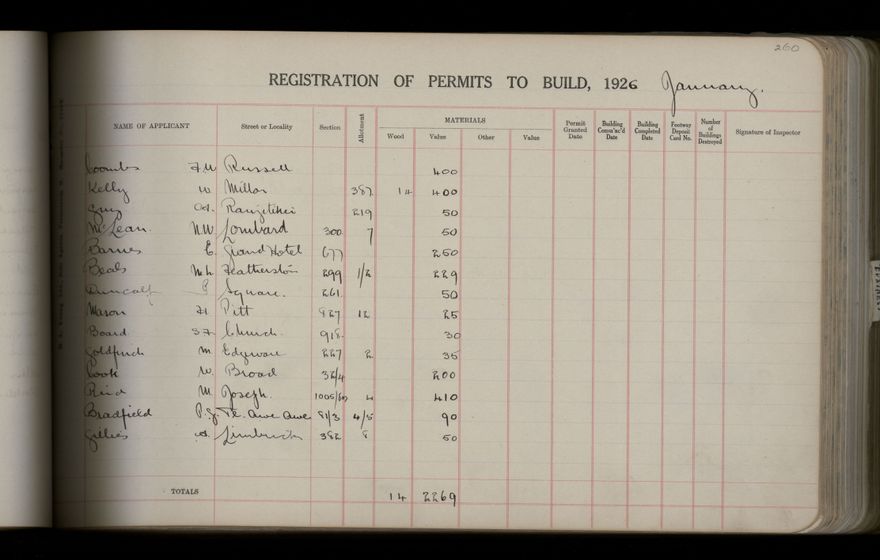 260
REGISTRATION OF PERMITS TO BUILD, 1926 January.
NAME OF APPLICANT Street or Locality Section Allotment MATERIALS Wood Value Other Value Permit Granted Date Building Comm'nc'd Date Building Completed Date Footway Deposit Card No. Number of Buildings Destroyed Signature of Inspector
Coombs F.W Russell 400
Kelly W Millar 387 14 400
Guy A. Rangitikei 219 50
McLean N.W Lombard 300 7 50
Barnes E. Grand Hotel 677 250
Beals M.L Featherston 299 1/2 229
Duncalf Square. 261 50
Mason H Pitt 827 12 25
Board S.F. Church 918 30
Goldfinch M. Edgware 227 2 35
Cook W. Broad 32/4 200
Reid M Joseph. 4 410
Bradfield P.J. Te. Awe Awe 81/3 4/5 90
Gillies A. Limbrick 382 8 50
TOTALS 14 2269